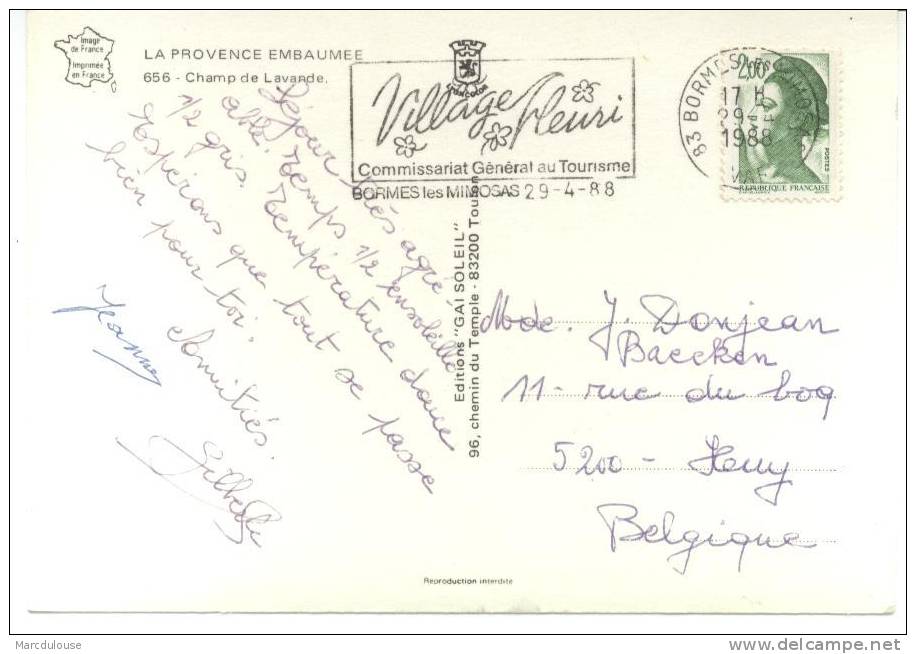 Image
de France
Imprimée
en France
LA PROVENCE EMBAUMEE
656 - Champ de Lavande.
Village Fleuri
Commissariat Général au Tourisme
BORMES les MIMOSAS 29-4-88
83 BORMES
17 H
29
1988
VAR
2,00
POSTES
REPUBLIQUE FRANÇAISE
Séjour très agré-
able temps 1/2 ensoleillé
1/2 gris. Température douce
Espérons que tout se passe
bien pour toi.
Amitiés.
Jeanne
Gilberte
Editions "GAI SOLEIL"
96, chemin du Temple - 83200 Toulon
Mde. J. Donjean
Baecken
11 - rue du bog
5200 - Huy
Belgique
Reproduction interdite
Marcdulouse
www.delcampe.net